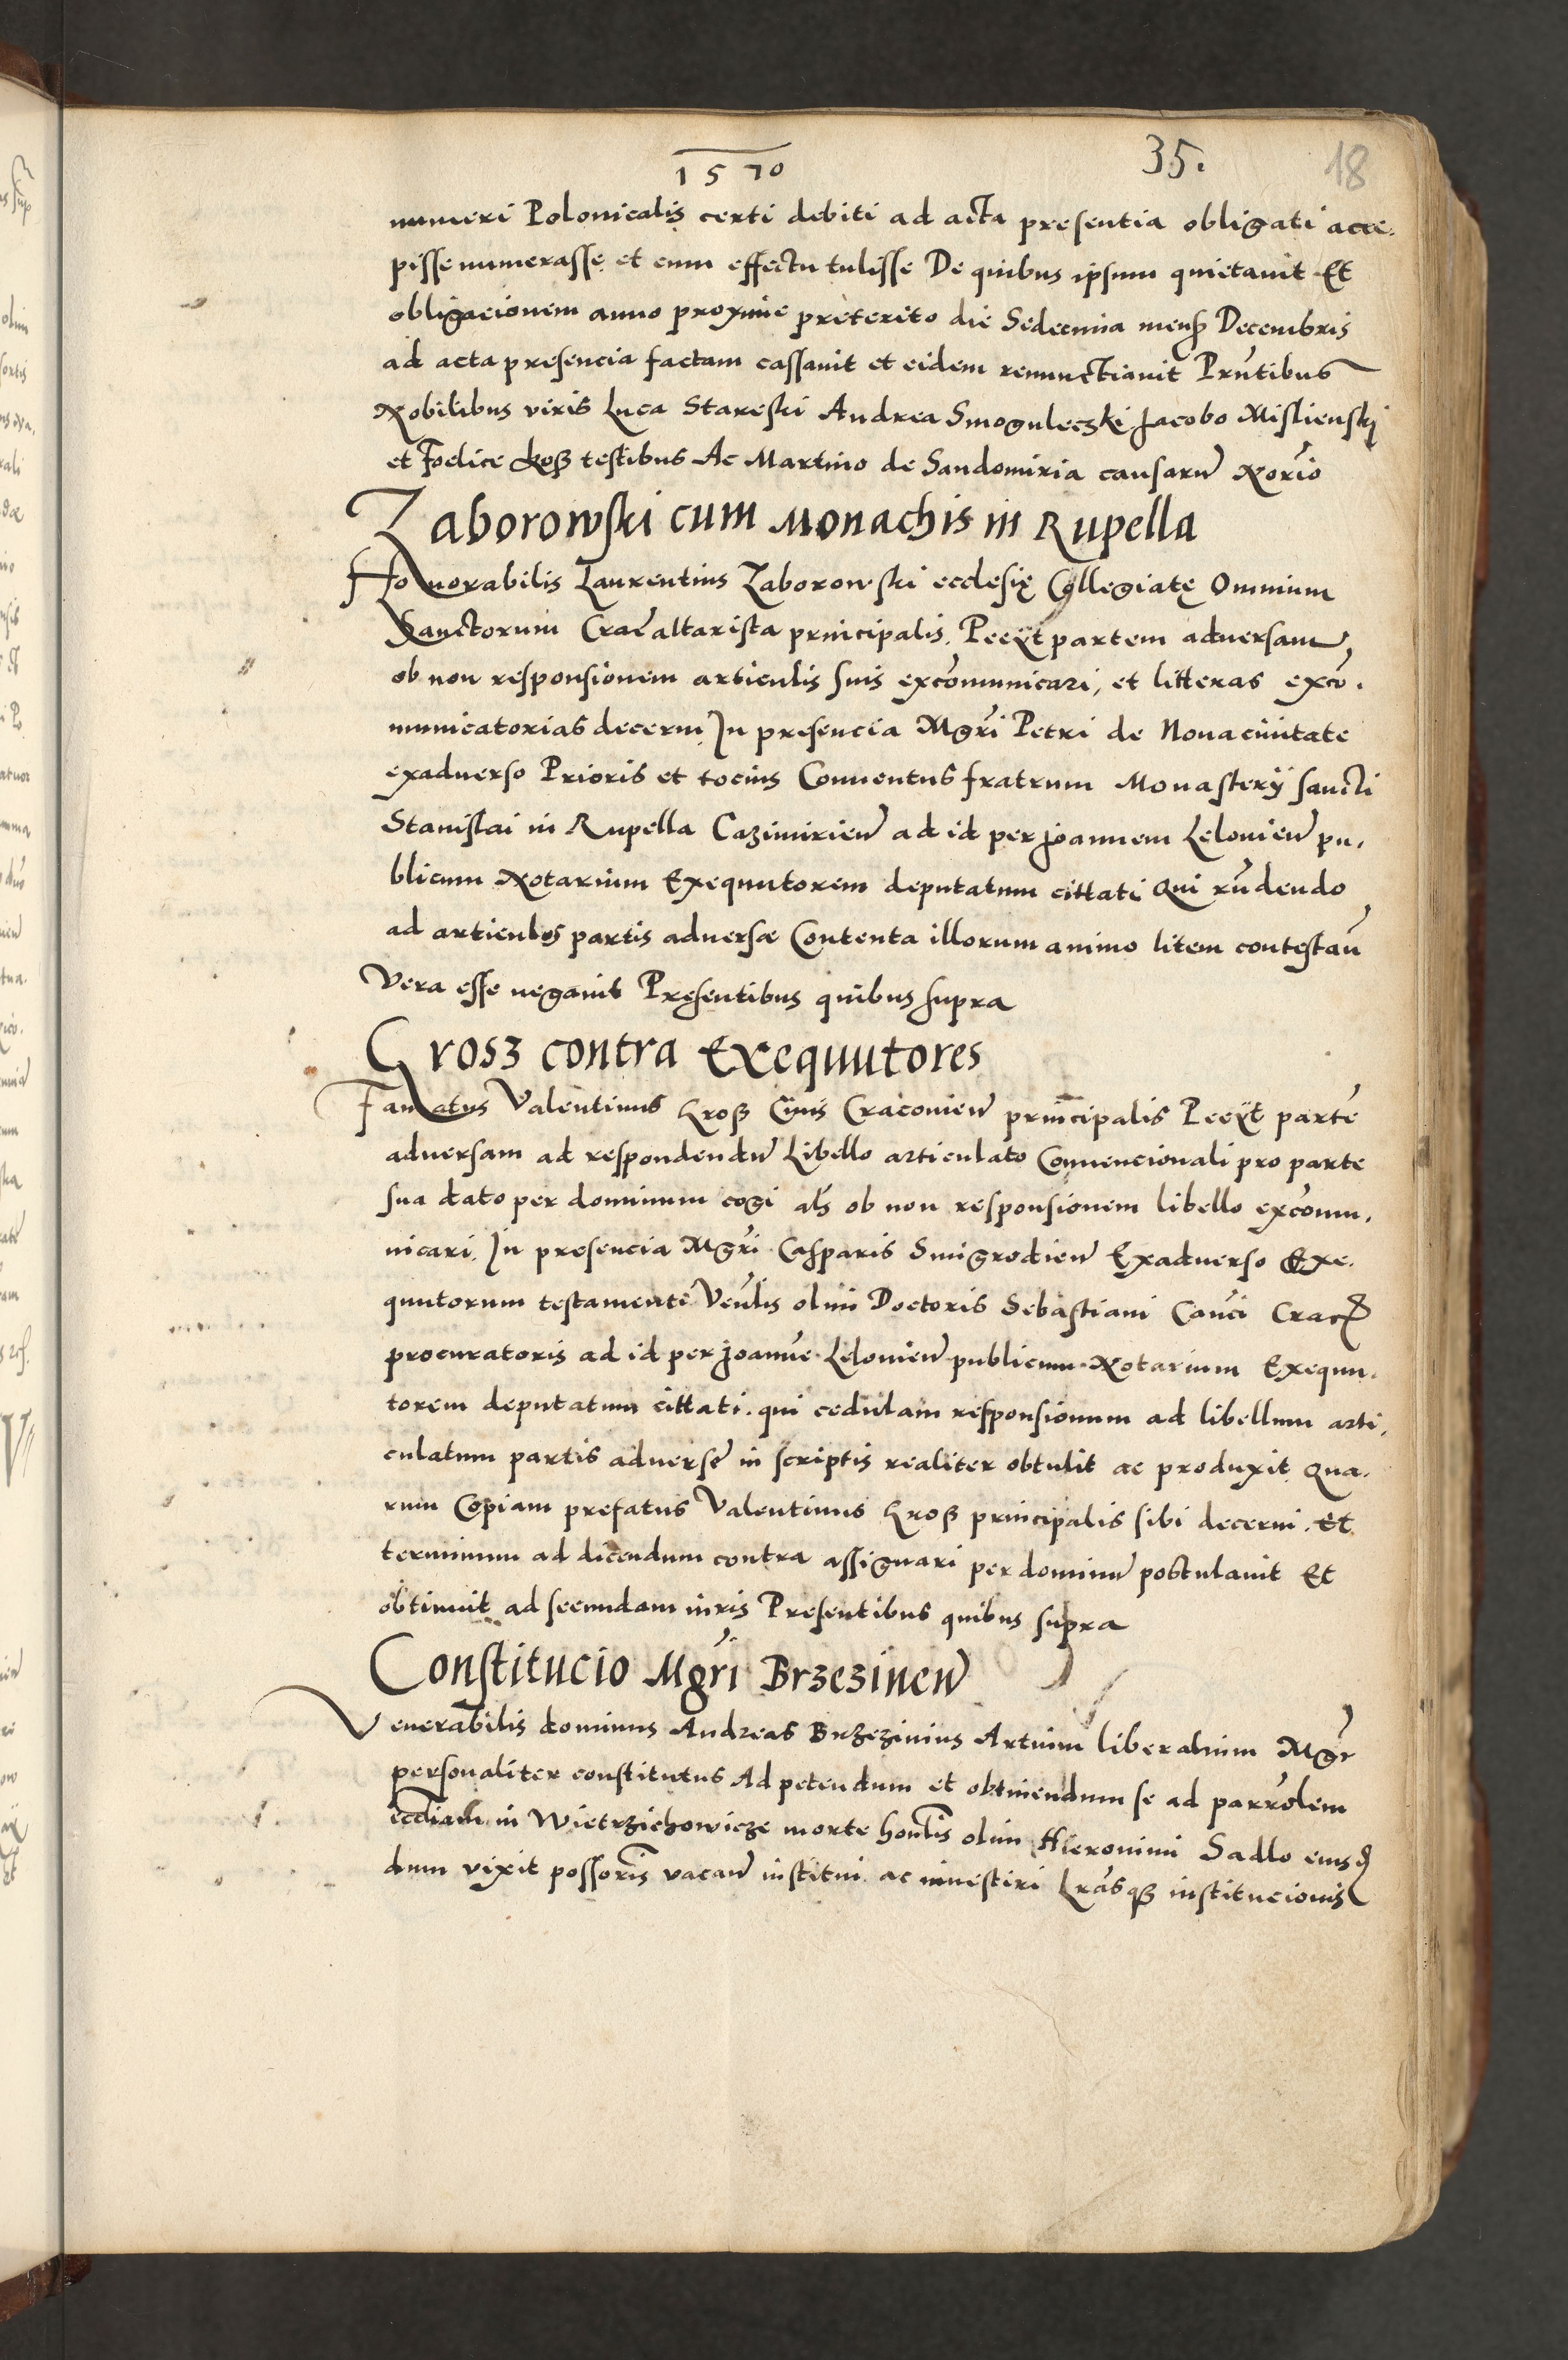 1570 35. 18
numeri Polonicalis certi debiti ad acta presentia obligati acce.
pisse numerasse et cum effectu tulisse De quibus ipsum quietavit Et
obligacionem anno proxime preterito die Sedecima mensis Decembris
ad acta presencia factam cassavit et eidem renunctiavit Prntibus
Nobilibus viris Luca Stareski Andrea Smoguleczki Jacobo Mislienskij
et Foelice testibus Ac Martino de Sandomiria causarum Norio
Zaborowski cum Monachis in Rupella
Honorabilis Laurentius Zaborowski ecclesię Collegiatę Omnium
Sanctorum Crac altarista principalis. Peeÿt partem adversam
ob non responsionem articulis suis excomunicari, et litteras exco.
municatorias decerni In presencia Mgri Petri de Nova civitate
exadverso Prioris et tocius Conventus fratrum Monasterÿ sancti
Stanislai in Rupella Cazimirien ad id per Joannem Lelovien pu.
blicum Notarium Exequutorem deputatum cittati Qui rndendo
ad articulos partis adversae Contenta illorum animo litem contestan
Vera esse negavit Presentibus quibus supra
Grosz contra Exequutores
Famatus Valentinus Kroß Civis Cracovien principalis Peeÿt parte
adversam ad respondendum Libello articulato Convencionali pro parte
sua dato per dominum cogi als ob non responsionem libello excomu.
nicari. In presencia Mgri Casparis Smigrodien Exadverso Exe.
quutorum testamenti Venlis olim Doctoris Sebastiani Canci Crac
procuratoris ad id per Joanne Lelovien publicum Notarium Exequu.
torem deputatum cittati. qui cedulam responsionum ad libellum arti.
culatum partis adverse in scriptis realiter obtulit ac produxit Qua.
rum Copiam prefatus Valentinus Kroß principalis sibi decerni. Et
terminum ad dicendum contra assignari per dominum postulavit Et
obtinuit ad secundam iuris Presentibus quibus supra
Constitucio Mgri Brzezinen
Venerabilis dominus Andreas Brzezinius Artium liberalium Mgr
personaliter constitutus Ad petendum et obtinendum se ad parrolem
eccliam in Wietrzichowicze morte honlis olim Hieronimi Sadlo eiusd
dum vixit possoris vacan institui ac investiri Lrasque institucionis